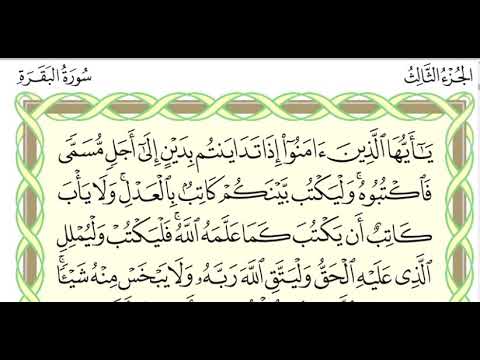 الجزء الثالث
سورة البقرة
يَٰٓأَيُّهَا ٱلَّذِينَ ءَامَنُوٓا۟ إِذَا تَدَايَنتُم بِدَيْنٍ إِلَىٰٓ أَجَلٍ مُّسَمًّى
فَٱكْتُبُوهُ ۚ وَلْيَكْتُب بَّيْنَكُمْ كَاتِبٌۢ بِٱلْعَدْلِ ۚ وَلَا يَأْبَ
كَاتِبٌ أَن يَكْتُبَ كَمَا عَلَّمَهُ ٱللَّهُ ۚ فَلْيَكْتُبْ وَلْيُمْلِلِ
ٱلَّذِى عَلَيْهِ ٱلْحَقُّ وَلْيَتَّقِ ٱللَّهَ رَبَّهُۥ وَلَا يَبْخَسْ مِنْهُ شَيْـًٔا ۚ